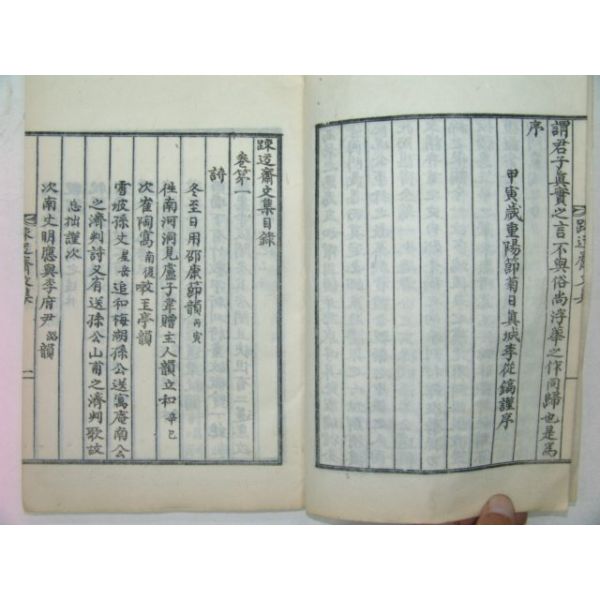 謂君子眞實之言不與俗尚浮華之作同歸也是爲
序
甲寅歲重陽節菊日眞城李從鎬謹序
踈逆齋文集目錄
卷第一
詩
冬至日用邵康節韻丙寅
往南河洞見盧子韋贈主人韻立和辛巳
次崔陶窩南復吟玉亭韻
雪坡孫丈星岳追和梅湖孫公送寓庵南公
之濟判詩又有送孫公山甫之濟判歌故
忘拙謹次
次南丈明應與李府尹韻